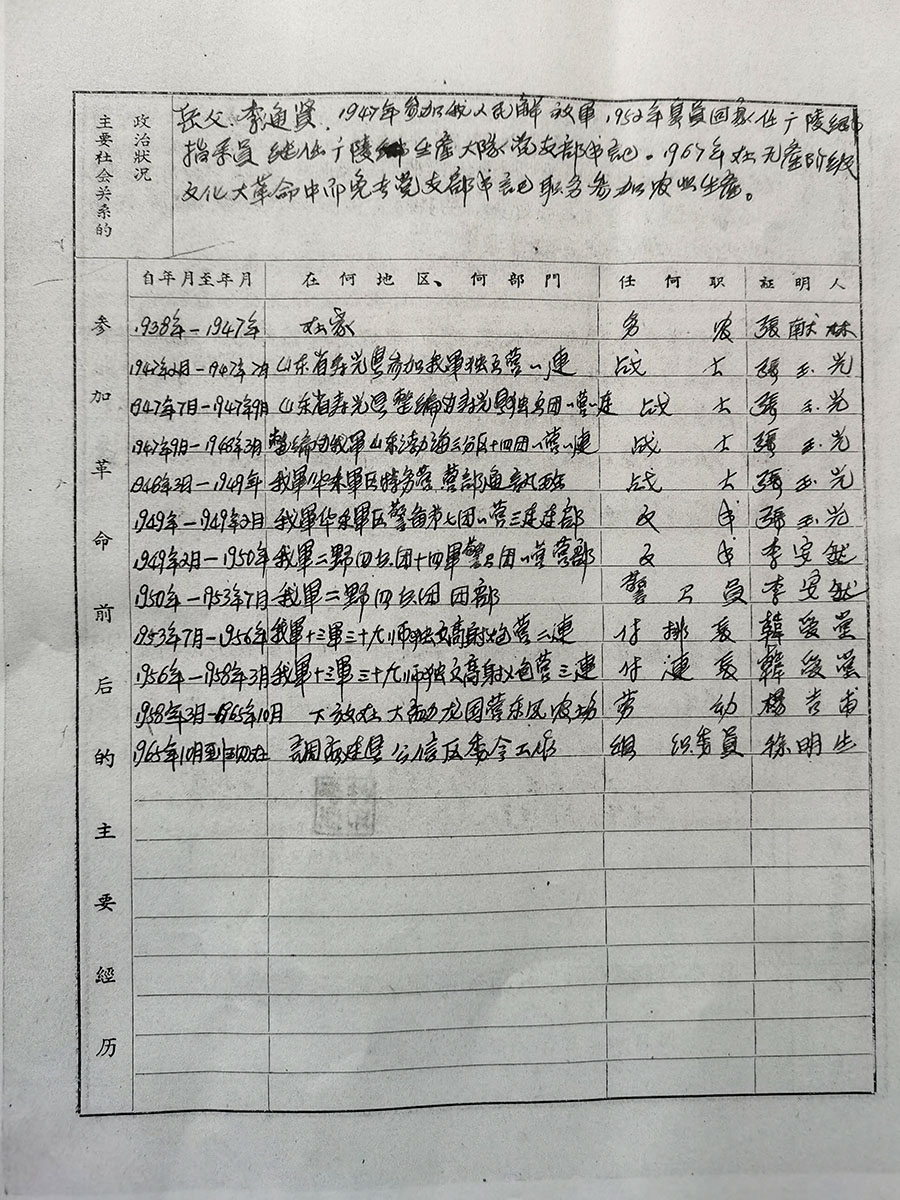 主要社会关系的
政治状况
岳父、李通贤，1947年参加我人民解放軍 1952年复員回家任广陵
指导員 继任广陵 生産大隊党支部书記。1967年在无産阶级
文化大革命中而免去党支部书記职务参加农业生産。
参加革命前后的主要經历
自年月至年月 在何地区、何部門 任何职 証明人
1938年—1947年 在家 务农 張献林
1947年2月—1947年7月 山东省寿光县参加我軍独立营一連 战士 張玉光
1947年7月—1947年9月 山东省寿光县整编为寿光县独立团一营一连 战士 張玉光
1947年9月—1948年3月 整编为我軍山东渤海三分区十四团一营一連 战士 張玉光
1948年3月—1949年 我軍华东軍区特务营 营部通訊班 战士 張玉光
1949年—1949年2月 我軍华东軍区警备第七团一营三连连部 文书 張玉光
1949年2月—1950年 我軍二野四兵团十四軍警卫团一营营部 文书 李安然
1950年—1953年7月 我軍二野四兵团 团部 警卫員 李安然
1953年7月—1956年 我軍十三軍三十九师独立高射炮营二連 付排長 韓爱党
1956年—1958年3月 我軍十三軍三十九师独立高射炮营三連 付連長 韓爱党
1958年3月—1965年10月 下放在大 龙国营东风农场 劳幼 楊吉甫
1965年10月到现在 調 建县公信区委会工作 組织委員 徐明生